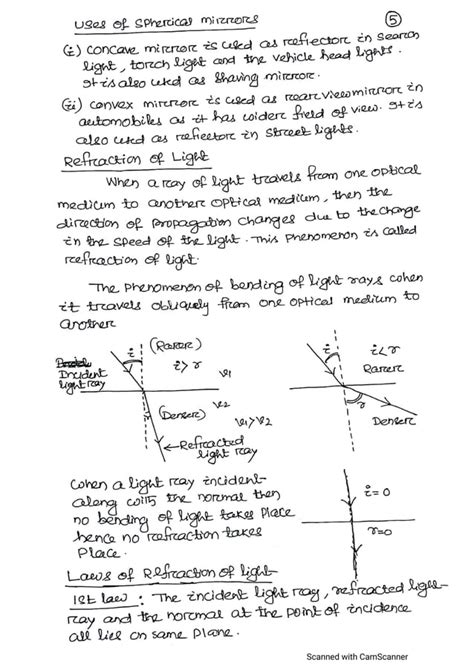 Uses of Spherical mirrors
5
(i) Concave mirror is used as reflector in search
light, torch light and the vehicle head lights.
It is also used as shaving mirror.
(ii) Convex mirror is used as rear view mirror in
automobiles as it has wider field of view. It is
also used as reflector in street lights.
Refraction of Light
When a ray of light travels from one optical
medium to another optical medium, then the
direction of propagation changes due to the change
in the speed of the light. This phenomenon is called
refraction of light.
The phenomenon of bending of light rays when
it travels obliquely from one optical medium to
another
i
(Rarer)
i > r
Incident
light ray
v1
v2
r
(Denser)
v1 > v2
← Refracted
light ray
i
i < r
Rarer
r
Denser
When a light ray incident
along with the normal then
no bending of light takes place
hence no refraction takes
place.
i = 0
r = 0
Laws of Refraction of light
1st law : The incident light ray, refracted light
ray and the normal at the point of incidence
all lies on same plane.
Scanned with CamScanner